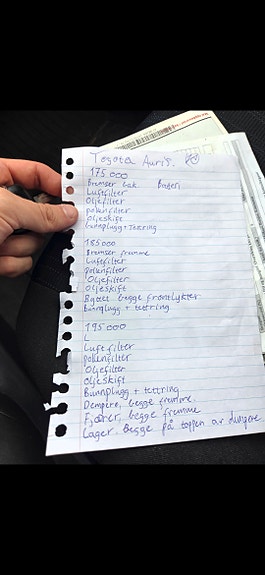 Toyota Auris.
175 000
Bremser bak Batteri
Luftfilter
Oljefilter
polenfilter
oljeskift
bunnplugg + tettring
185 000
Bremser framme
Luftfilter
polenfilter
Oljefilter
Oljeskift
Byttet begge frontlykter
Bunnplugg + tettring
195 000
L
Luftfilter
polenfilter
Oljefilter
oljeskift
Bunnplugg + tettring
Dempere, begge fremme.
Fjærer, begge fremme
Lager. begge på toppen av dempere